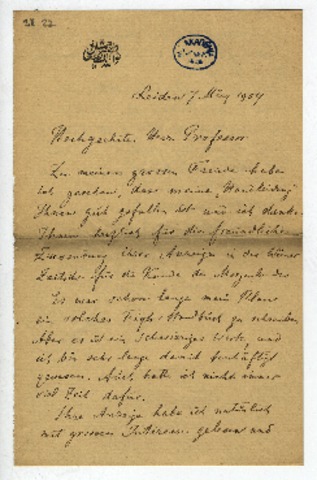 Leiden 7 März 1904
Hochgeehrter Herr Professor
Zu meiner grossen Freude habe
ich gesehen, dass meine „Handleiding"
Ihnen gut gefallen hat und ich danke
Ihnen herzlich für die freundliche
Zusendung Ihrer Anzeige in der Wiener
Zeitschr. für die Kunde des Morgenlandes
Es war schon lange mein Plan
ein solches Fiqh-Handbuch zu schreiben
Aber es ist ein schwieriges Werk, und
ich bin sehr lange damit beschäftigt
gewesen. Auch hatte ich nicht immer
viel Zeit dafür.
Ihre Anzeige habe ich natürlich
mit grossem Interesse gelesen und